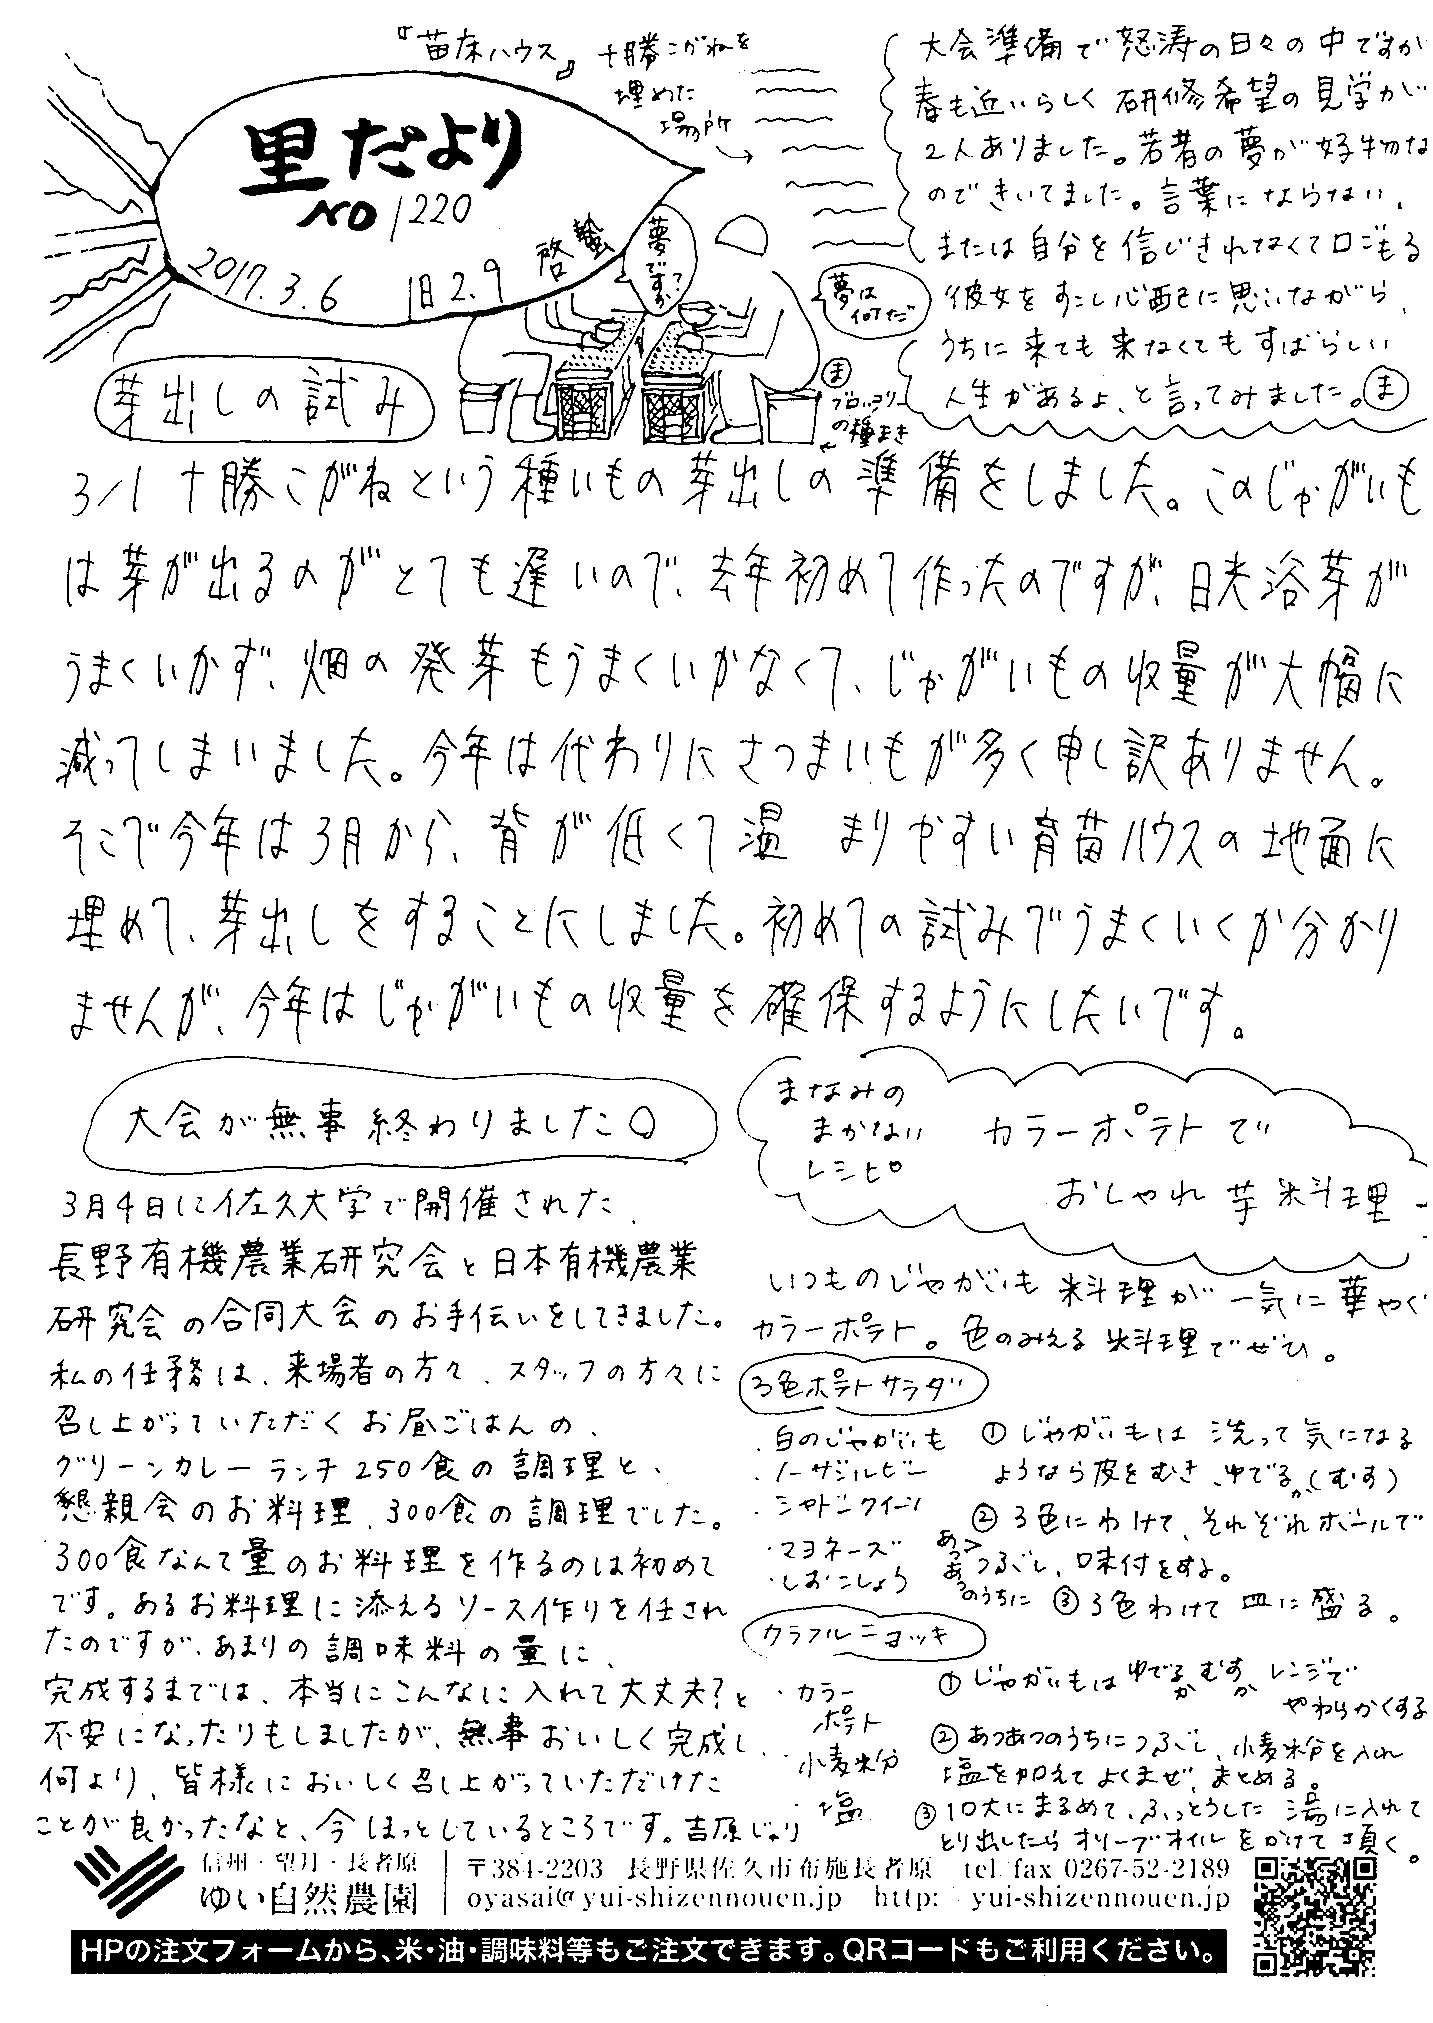 『苗床ハウス』
十勝こがねを
埋めた
場所
里だより
NO 1220
2017.3.6 旧2.9 啓蟄
夢ですかって
夢は
何だ
ま
ブロッコリー
の種まき
大会準備で怒涛の日々の中ですが
春も近いらしく研修希望の見学が
2人ありました。若者の夢が好物な
のできいてました。言葉にならない、
または自分を信じきれなくて口ごもる
彼女をすこし心配に思いながら、
うちに来ても来なくてもすばらしい
人生があるよ、と言ってみました。ま
芽出しの試み
3/1 十勝こがねという種いもの芽出しの準備をしました。このじゃがいも
は芽が出るのがとても遅いので、去年初めて作ったのですが、日光浴芽が
うまくいかず、畑の発芽もうまくいかなくて、じゃがいもの収量が大幅に
減ってしまいました。今年は代わりにさつまいもが多く申し訳ありません。
そこで今年は3月から、背が低くて温まりやすい育苗ハウスの地面に
埋めて、芽出しをすることにしました。初めての試みでうまくいくか分かり
ませんが、今年はじゃがいもの収量を確保するようにしたいです。
大会が無事終わりました
3月4日に佐久大学で開催された、
長野有機農業研究会と日本有機農業
研究会の合同大会のお手伝いをしてきました。
私の任務は、来場者の方々、スタッフの方々に
召し上がっていただくお昼ごはんの、
グリーンカレーランチ250食の調理と、
懇親会のお料理、300食の調理でした。
300食なんて量のお料理を作るのは初めて
です。あるお料理に添えるソース作りを任され
たのですが、あまりの調味料の量に、
完成するまでは、本当にこんなに入れて大丈夫?と
不安になったりもしましたが、無事おいしく完成し、
何より、皆様においしく召し上がっていただけた
ことが良かったなと、今ほっとしているところです。吉原じゅり
まなみの
まかない
レシピ
カラーポテトで
おしゃれ芋料理
いつものじゃがいも料理が一気に華やぐ
カラーポテト。色のみえる料理でぜひ。
3色ポテトサラダ
・白のじゃがいも
・ノーザンルビー
・シャドークイーン
・マヨネーズ
・しおこしょう
①じゃがいもは洗って気になる
ようなら皮をむき、ゆでるか(むす)
②3色にわけて、それぞれボールで
あつあつのうちに
つぶし、味付をする。
③3色わけて皿に盛る。
カラフルニョッキ
・カラー
ポテト
・小麦粉
・塩
①じゃがいもはゆでるかむすかレンジで
やわらかくする
②あつあつのうちにつぶし、小麦粉を入れ
塩を加えてよくまぜ、まとめる。
③10大にまるめて、ふっとうした湯に入れて
とり出したらオリーブオイルをかけて頂く。
信州・望月・長者原
ゆい自然農園
〒384-2203 長野県佐久市布施長者原 tel. fax 0267-52-2189
oyasai@yui-shizennouen.jp http: yui-shizennouen.jp
HPの注文フォームから、米・油・調味料等もご注文できます。QRコードもご利用ください。